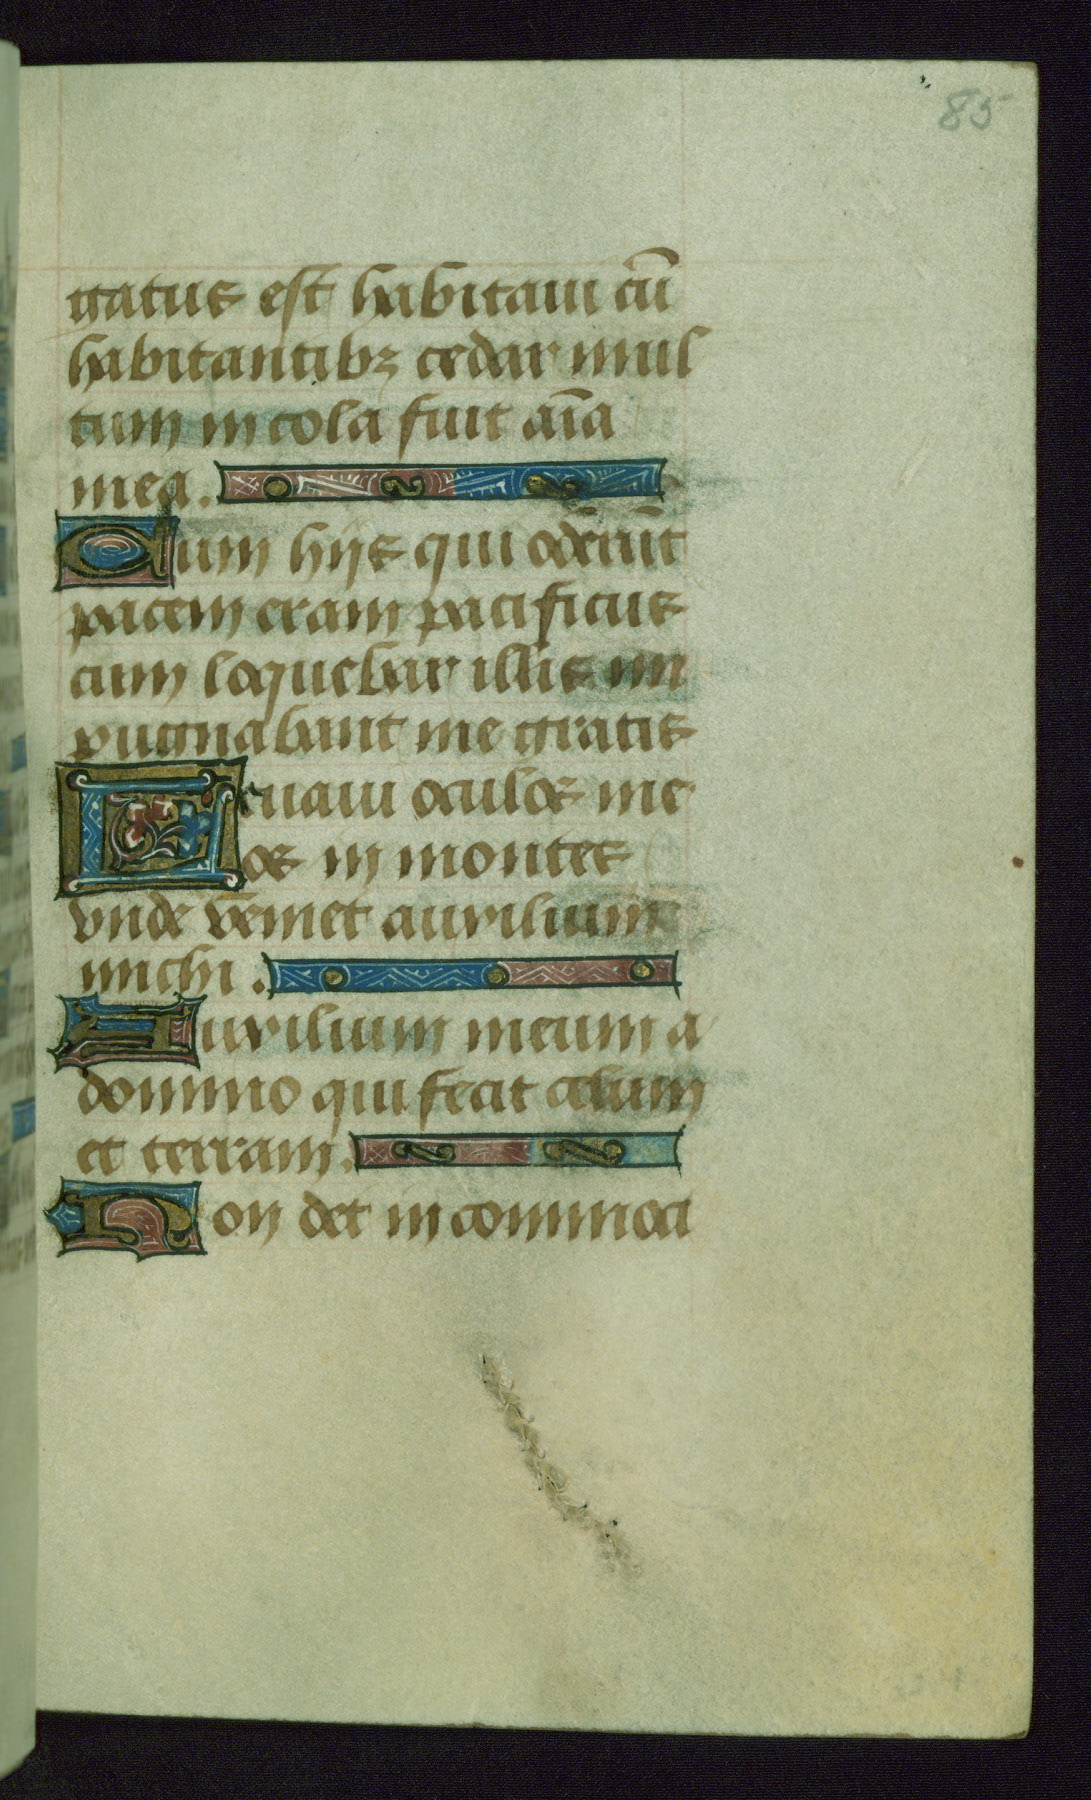 85
gatus est habitaui cū
habitantibꝫ cedar mul
tum incola fuit aīa
mea.
Cum hijs qui oderūt
pacem eram pacificus
cum loquebar illis im
pugnabant me gratis
Leuaui oculos me
os in montes
vnde veniet auxilium
michi.
Auxilium meum a
domino qui fecit celum
et terram.
Non det in commoci